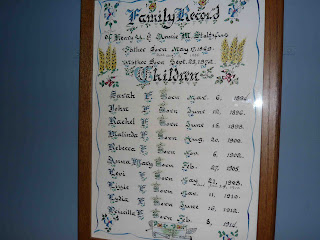 Family Record
of Henry & Annie M.
Father Born May 17, 18
Mother Born Sept. 23, 18
Children
Sarah E Born Mar. 6, 189
John E Born June 10, 189
Rachel E Born June 15, 1898
Malinda E Born Aug. 20, 1900
Rebecca E Born Nov. 6, 1902
Anna Mary Born Feb. 27, 1905
Levi E Born May 23, 1908
Lizzie E Born Mar. 11, 1910
Lydia E Born June 16, 1912
Priscilla E Born Feb. 3, 1916